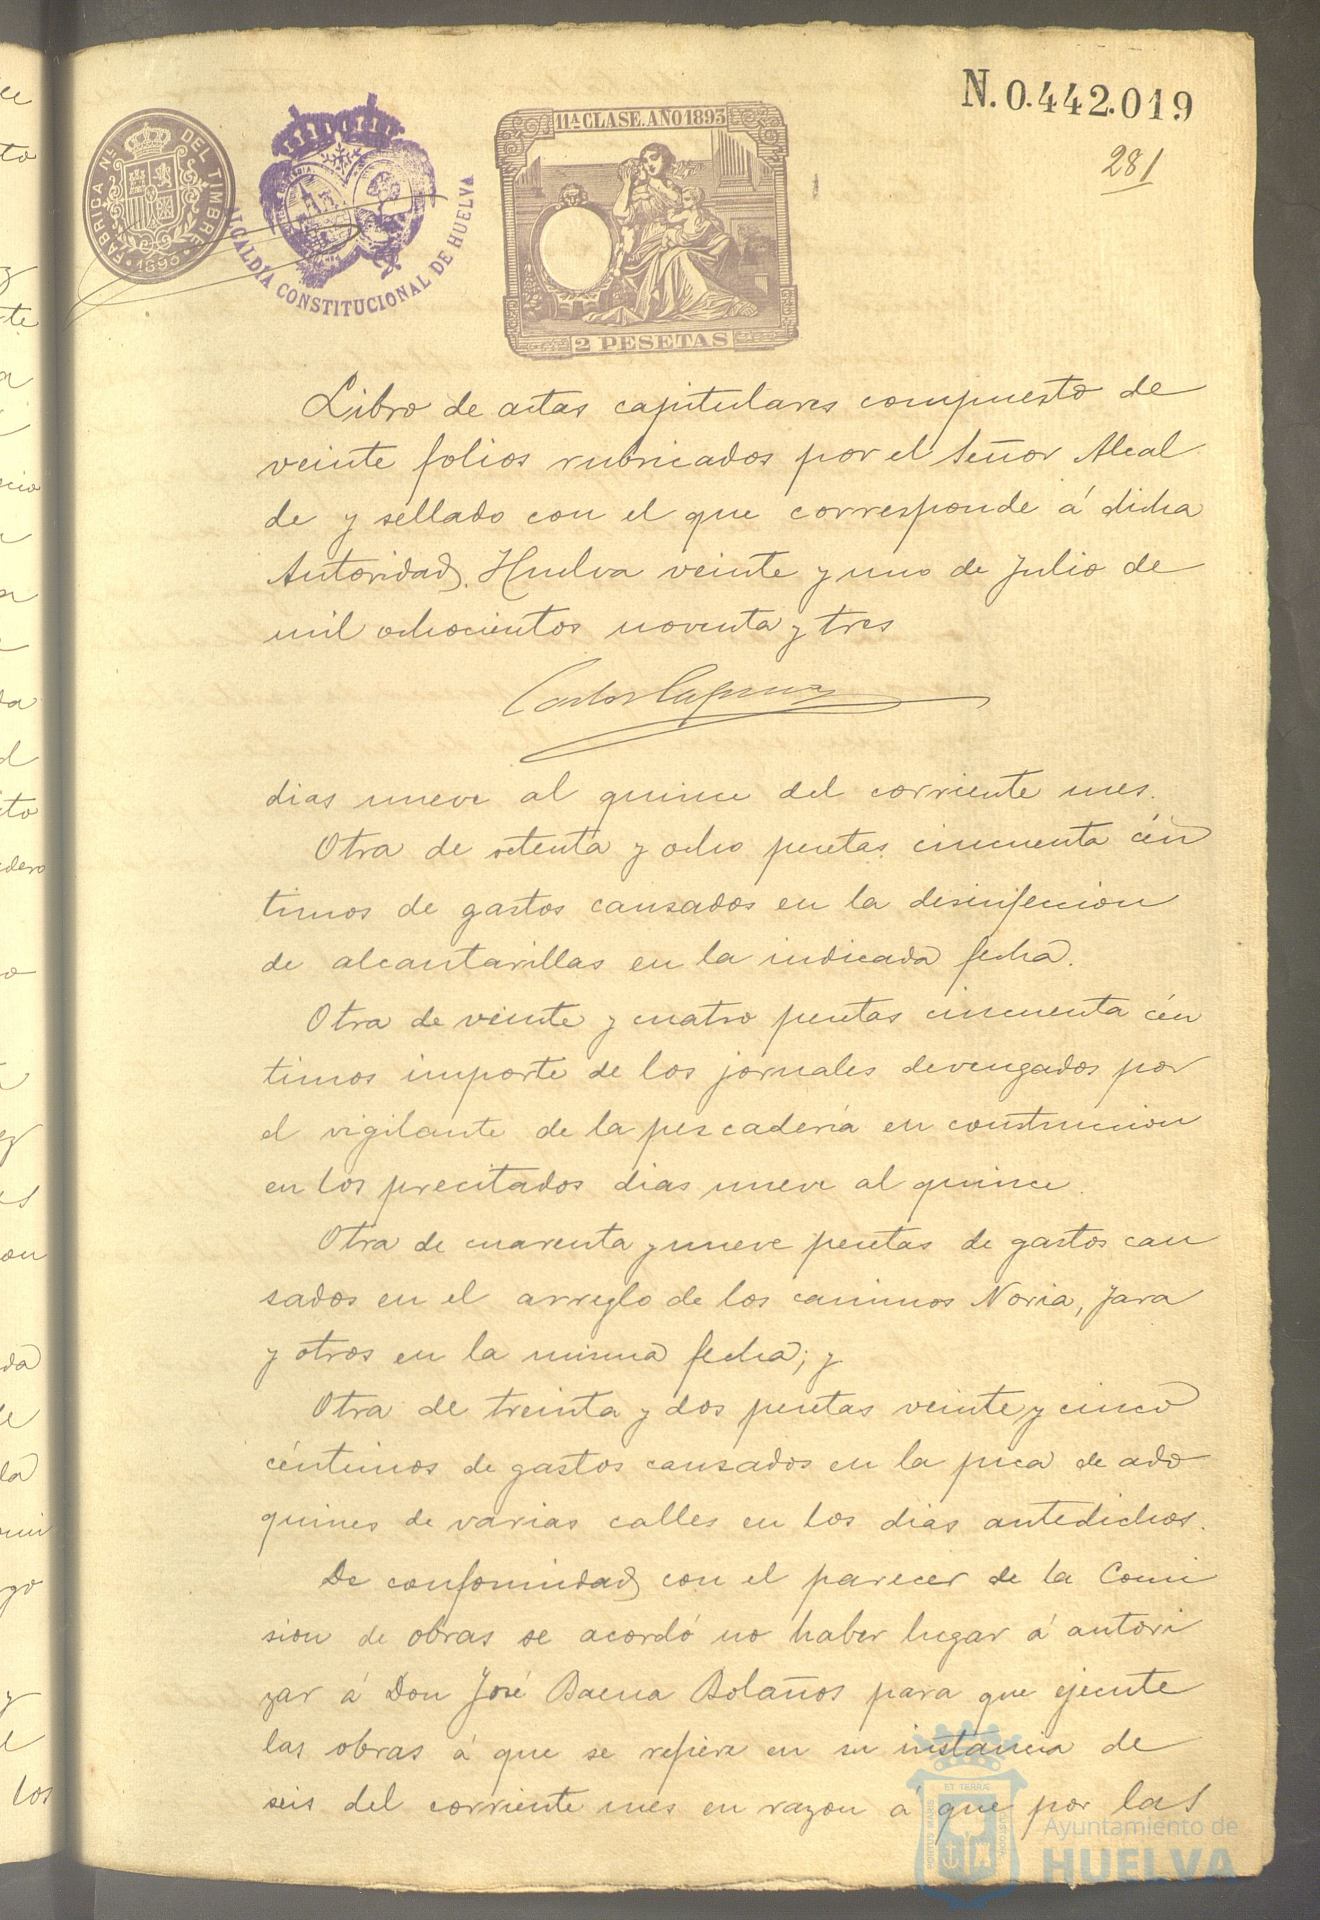 N. 0.442.019
281
FÁBRICA NL. DEL TIMBRE
1893
ALCALDÍA CONSTITUCIONAL DE HUELVA
11A CLASE. AÑO 1893
2 PESETAS
Libro de actas capitulares compuesto de
veinte folios rubricados por el Señor Alcal
de y sellado con el que corresponde á dicha
Autoridad. Huelva veinte y uno de Julio de
mil ochocientos noventa y tres
dias nueve al quince del corriente mes.
Otra de setenta y ocho pesetas cincuenta cén
timos de gastos causados en la desinfeccion
de alcantarillas en la indicada fecha.
Otra de veinte y cuatro pesetas cincuenta cén
timos importe de los jornales devengados por
el vigilante de la pescadería en construccion
en los precitados dias nueve al quince.
Otra de cuarenta y nueve pesetas de gastos cau
sados en el arreglo de los caminos Noria, Jara
y otros en la misma fecha; y
Otra de treinta y dos pesetas veinte y cinco
céntimos de gastos causados en la pica de ado
quines de varias calles en los dias antedichos.
De conformidad con el parecer de la Comi
sion de obras se acordó no haber lugar á autori
zar á Don José Baena Bolaños para que ejecute
las obras á que se refiere en su instancia de
seis del corriente mes en razon á que por las
Ayuntamiento de
HUELVA